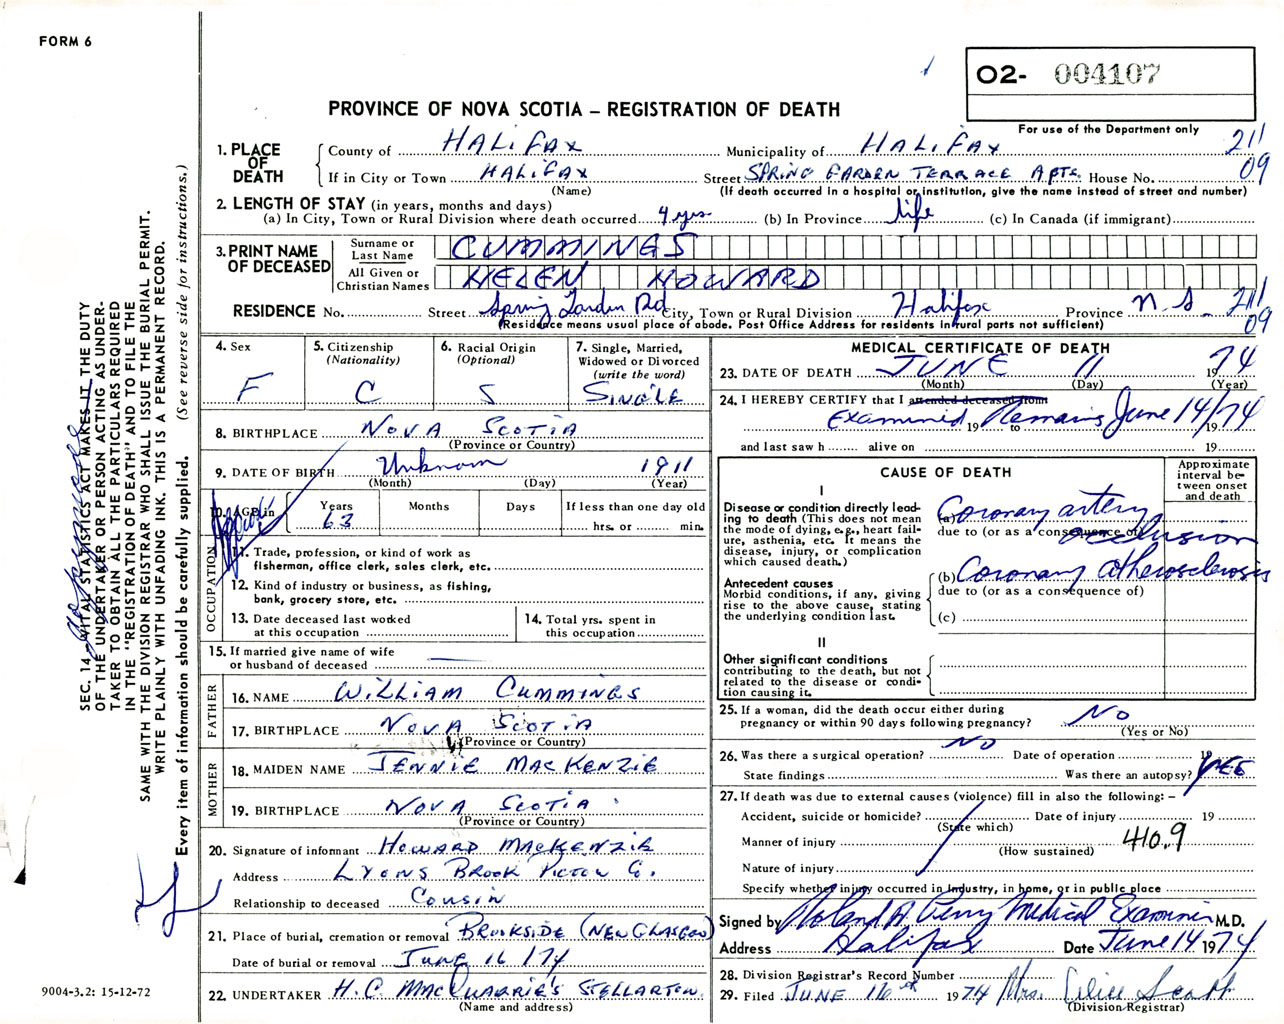 FORM 6
O2- 004107
PROVINCE OF NOVA SCOTIA – REGISTRATION OF DEATH
For use of the Department only
1. PLACE OF DEATH County of HALIFAX Municipality of HALIFAX 211
If in City or Town HALIFAX Street SPRING GARDEN TERRACE APTS. House No. 09
(Name) (If death occurred in a hospital or institution, give the name instead of street and number)
2. LENGTH OF STAY (in years, months and days)
(a) In City, Town or Rural Division where death occurred 4 yrs (b) In Province life (c) In Canada (if immigrant)
3. PRINT NAME OF DECEASED
Surname or Last Name CUMMINGS
All Given or Christian Names HELEN HOWARD
RESIDENCE No. Street Spring Garden Rd City, Town or Rural Division Halifax Province N.S. 211
(Residence means usual place of abode. Post Office Address for residents in rural parts not sufficient) 09
4. Sex F
5. Citizenship (Nationality) C
6. Racial Origin (Optional) S
7. Single, Married, Widowed or Divorced (write the word) SINGLE
8. BIRTHPLACE NOVA SCOTIA
(Province or Country)
9. DATE OF BIRTH Unknown 1911
(Month) (Day) (Year)
10. AGE in Years 63 Months Days If less than one day old
hrs. or min.
OCCUPATION
11. Trade, profession, or kind of work as
fisherman, office clerk, sales clerk, etc.
12. Kind of industry or business, as fishing,
bank, grocery store, etc.
13. Date deceased last worked
at this occupation
14. Total yrs. spent in
this occupation
15. If married give name of wife
or husband of deceased —
FATHER
16. NAME WILLIAM CUMMINGS
17. BIRTHPLACE NOVA SCOTIA
(Province or Country)
MOTHER
18. MAIDEN NAME JENNIE MACKENZIE
19. BIRTHPLACE NOVA SCOTIA
(Province or Country)
20. Signature of informant HOWARD MACKENZIE
Address LYONS BROOK PICTOU Co.
Relationship to deceased COUSIN
21. Place of burial, cremation or removal BROOKSIDE (NEW GLASGOW)
Date of burial or removal JUNE 16/74
22. UNDERTAKER H.C. MACQUARRIE'S STELLARTON
(Name and address)
MEDICAL CERTIFICATE OF DEATH
23. DATE OF DEATH JUNE 11 1974
(Month) (Day) (Year)
24. I HEREBY CERTIFY that I attended deceased from
Examined 19 Remains to June 14/74 19
and last saw h alive on 19
CAUSE OF DEATH
Approximate interval between onset and death
I
Disease or condition directly lead-
ing to death (This does not mean
the mode of dying, e.g., heart fail-
ure, asthenia, etc. It means the
disease, injury, or complication
which caused death.)
(a) Coronary artery occlusion
due to (or as a consequence of)
Antecedent causes
Morbid conditions, if any, giving
rise to the above cause, stating
the underlying condition last.
(b) Coronary atherosclerosis
due to (or as a consequence of)
(c)
II
Other significant conditions
contributing to the death, but not
related to the disease or condi-
tion causing it.
25. If a woman, did the death occur either during
pregnancy or within 90 days following pregnancy? NO
(Yes or No)
26. Was there a surgical operation? NO Date of operation 19
State findings Was there an autopsy? YES
27. If death was due to external causes (violence) fill in also the following: –
Accident, suicide or homicide? Date of injury 19
(State which)
Manner of injury 410.9
(How sustained)
Nature of injury
Specify whether injury occurred in Industry, in home, or in public place
Signed by Roland A. Perry Medical Examiner M.D.
Address Halifax Date June 14 1974
28. Division Registrar's Record Number
29. Filed JUNE 16th 1974 Mrs. Alice Scott
(Division Registrar)
SEC. 14 – VITAL STATISTICS ACT MAKES IT THE DUTY
OF THE UNDERTAKER OR PERSON ACTING AS UNDER-
TAKER TO OBTAIN ALL THE PARTICULARS REQUIRED
IN THE "REGISTRATION OF DEATH" AND TO FILE THE
SAME WITH THE DIVISION REGISTRAR WHO SHALL ISSUE THE BURIAL PERMIT.
WRITE PLAINLY WITH UNFADING INK. THIS IS A PERMANENT RECORD.
Every item of information should be carefully supplied. (See reverse side for instructions.)
9004-3.2: 15-12-72